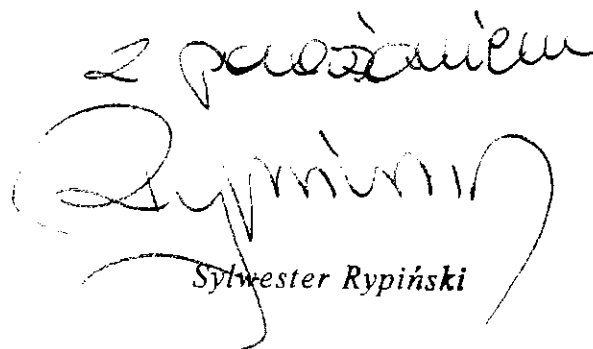 z poważaniem
Rypiński
Sylwester Rypiński